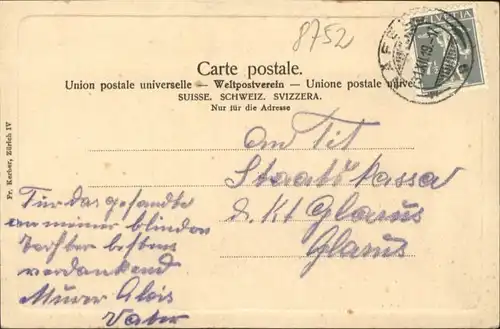 8752
HELVETIA
Carte postale.
Union postale universelle — Weltpostverein — Unione postale unive
SUISSE. SCHWEIZ. SVIZZERA.
Nur für die Adresse
An Tit
Staatskassa
d. Kt Glarus
Glarus
Für das gesandte
an meiner blinden
Tochter bestens
verdankend
Murer Alois
Vater
Fr. Kerber, Zürich IV